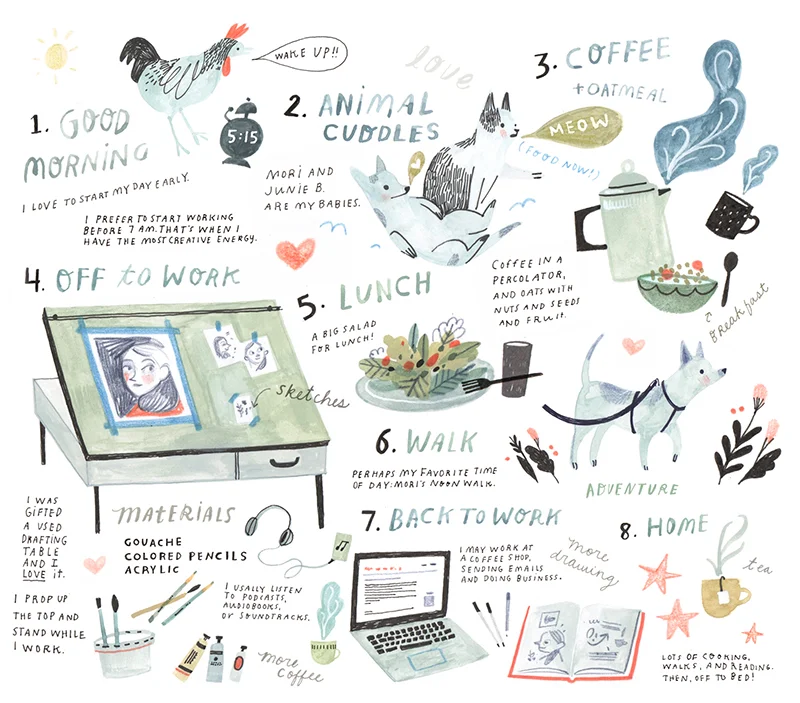 WAKE UP!!
1. GOOD
MORNING
5:15
I LOVE TO START MY DAY EARLY.
I PREFER TO START WORKING
BEFORE 7 AM. THAT'S WHEN I
HAVE THE MOST CREATIVE ENERGY.
love
2. ANIMAL
CUDDLES
MORI AND
JUNIE B.
ARE MY BABIES.
MEOW
(FOOD NOW!)
3. COFFEE
+OATMEAL
COFFEE IN A
PERCOLATOR,
AND OATS WITH
NUTS AND SEEDS
AND FRUIT.
breakfast
4. OFF to WORK
sketches
I WAS
GIFTED
A USED
DRAFTING
TABLE
AND I
LOVE it.
I PROP UP
THE TOP AND
STAND WHILE
I WORK.
MATERIALS
GOUACHE
COLORED PENCILS
ACRYLIC
I USALLY LISTEN
TO PODCASTS,
AUDIOBOOKS,
OR SOUNDTRACKS.
more
coffee
5. LUNCH
A BIG SALAD
FOR LUNCH!
6. WALK
PERHAPS MY FAVORITE TIME
OF DAY: MORI'S NOON WALK.
ADVENTURE
7. BACK TO WORK
I MAY WORK AT
A COFFEE SHOP,
SENDING EMAILS
AND DOING BUSINESS.
more
drawing
8. HOME
tea
LOTS OF COOKING,
WALKS, AND READING.
THEN, OFF TO BED!